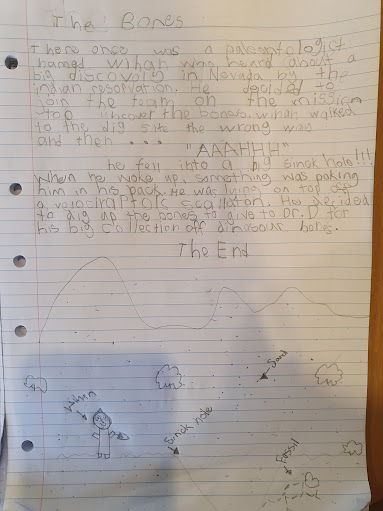 The Bones
There once was a paleontologist
named Wihan who heard about a
big discovery in Nevada by the
indian reservation. He decided to
join the team on the mission
too uncover the bones. Wihan walked
to the dig site the wrong way
and then ...
"AAAHHH"
he fell into a big sinck hole!!!
When he woke up, something was poking
him in his back. He was lying on top off
a velociraptors scallaton. He decided
to dig up the bones to give to Dr. D for
his big collection off dinosour bones.
The End
Sand
Wihan
Sinck hole
Fossil